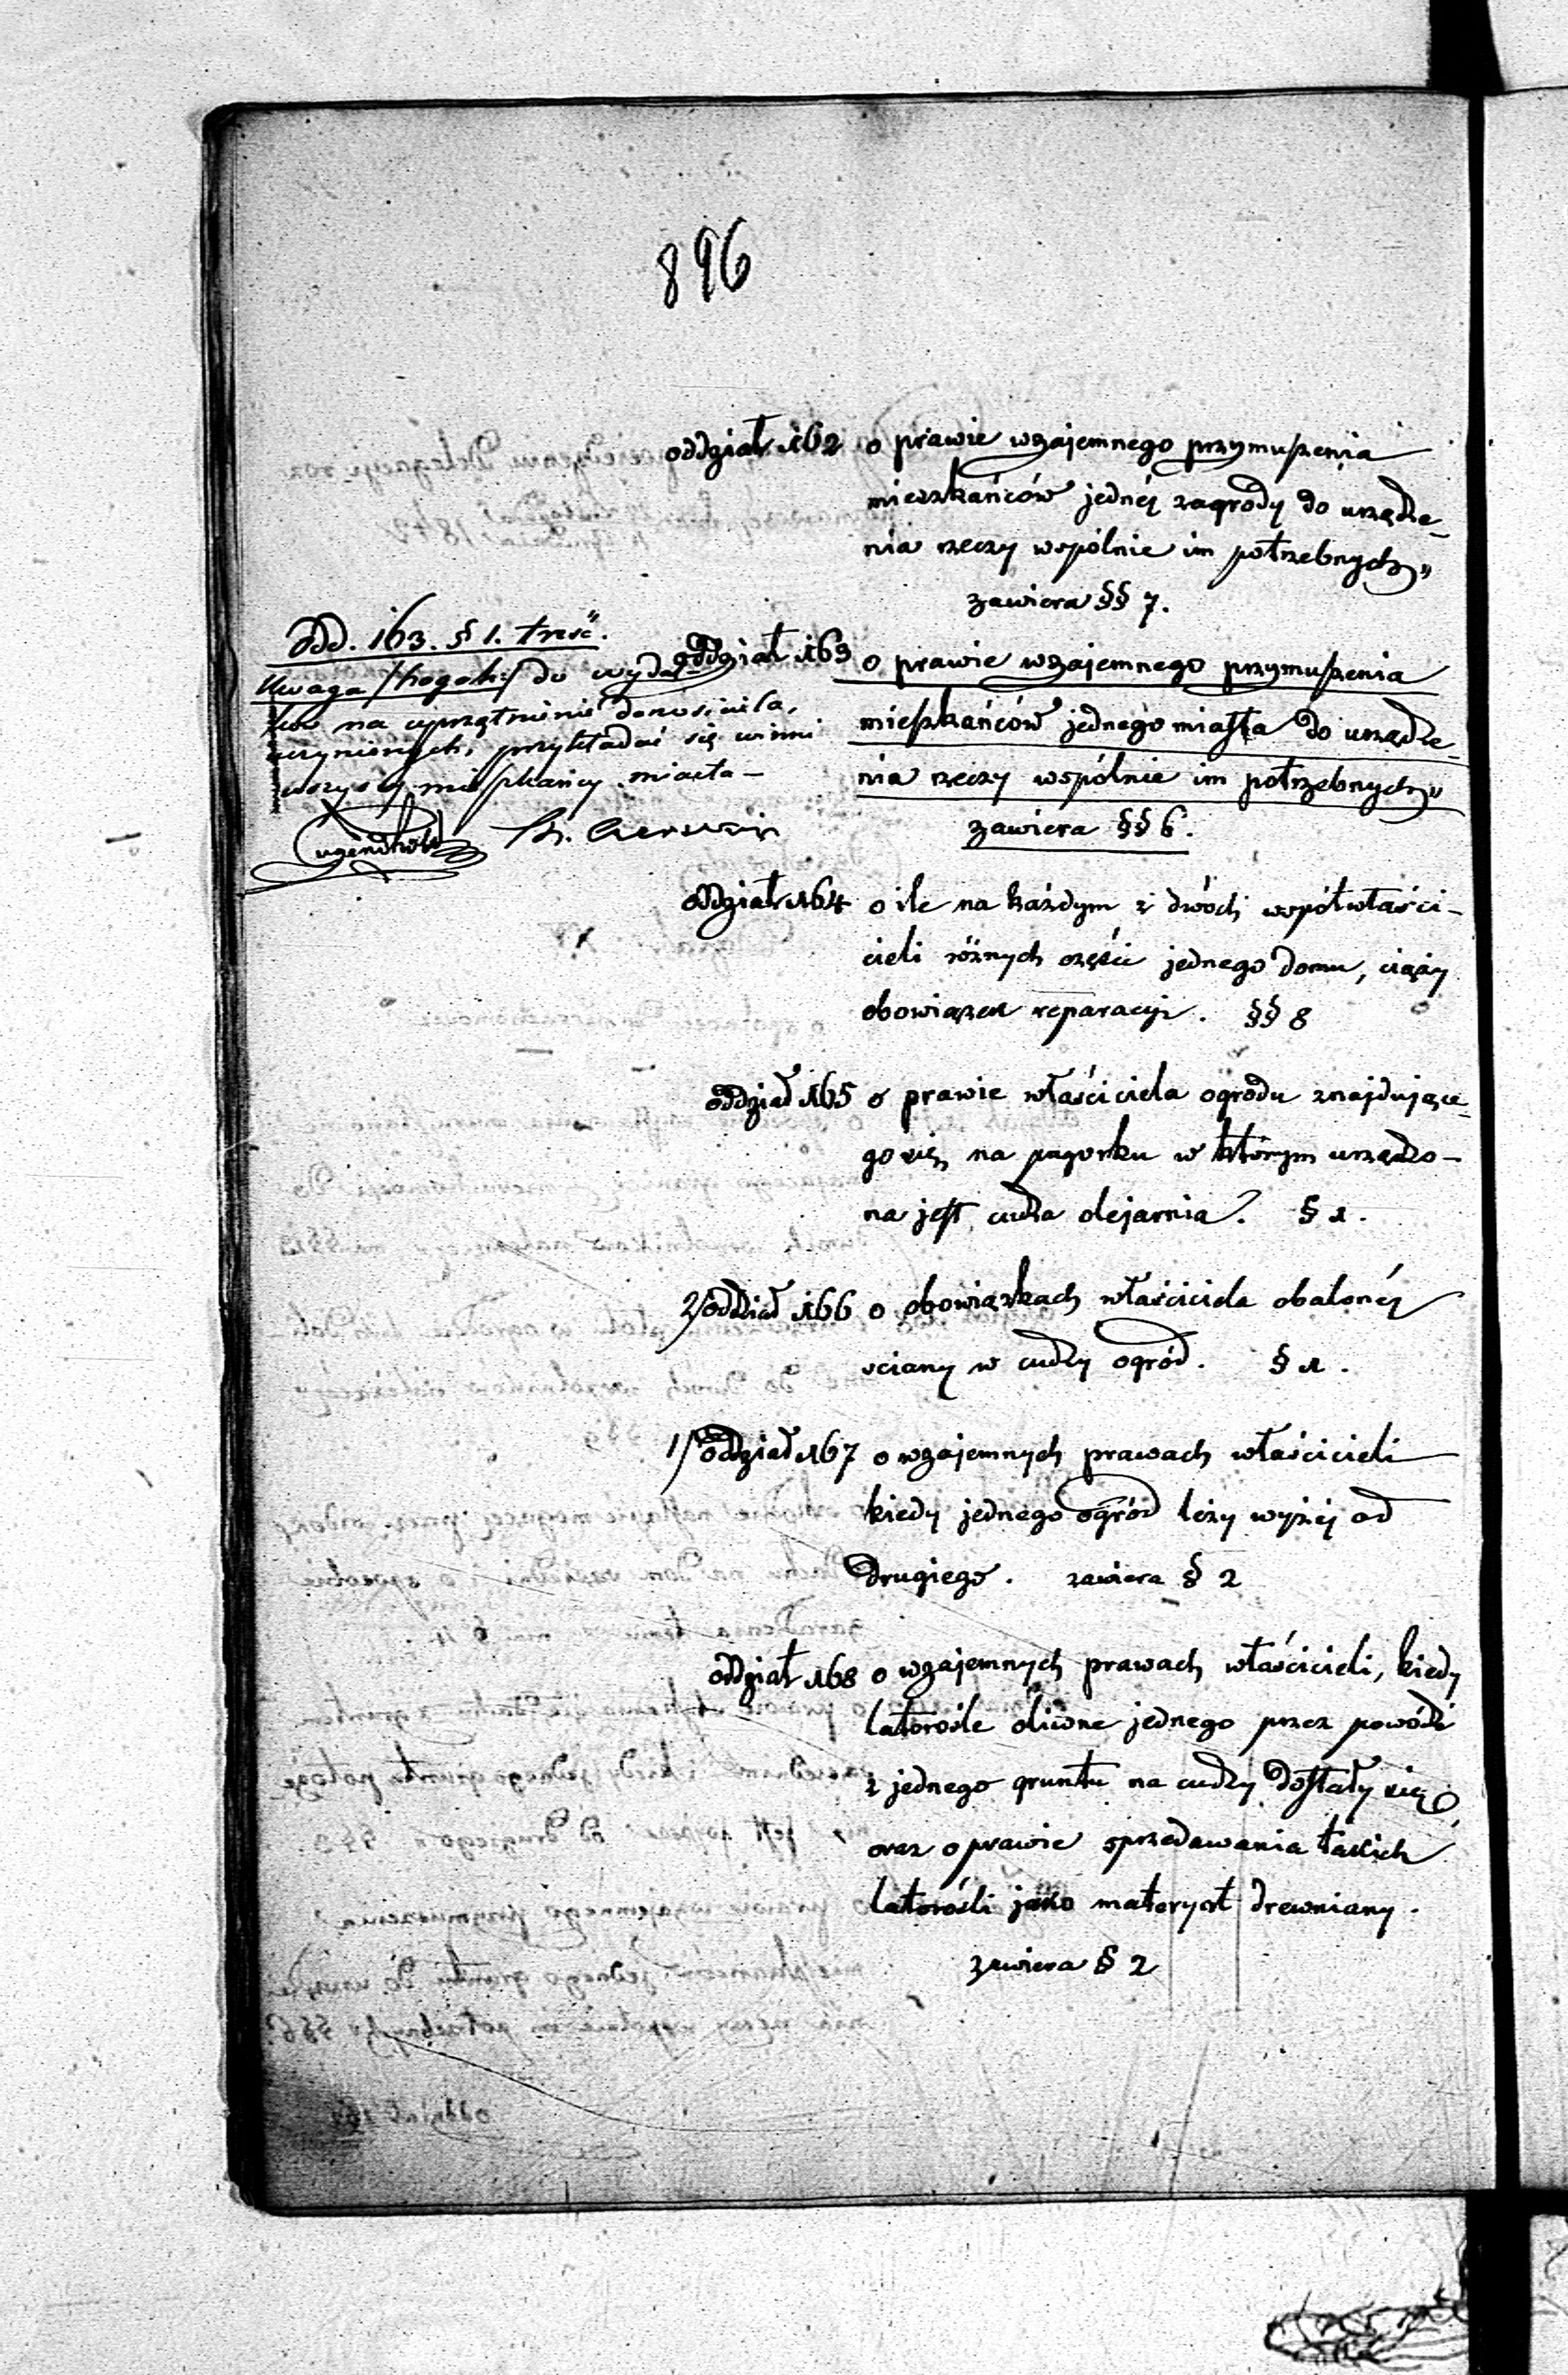 896
oddział 162 o prawie wzajemnego przymuszenia
mieszkańców jednéj zagrody do urządze-
nia rzeczy wspólnie im potrzebnych„
zawiera §§ 7.
Odd. 163. § 1. treść.
Uwaga /hagah:/ do wydat-
ków na uprzątnienie donosiciela,
uczynionych, przykładać się winni
wszyscy mieszkańcy miasta –
oddział 163 o prawie wzajemnego przymuszenia
mieszkańców jednego miasta do urządze-
nia rzeczy wspólnie im potrzebnych„
zawiera §§ 6.
oddział 164 o ile na każdym z dwóch współwłaści-
cieli różnych części jednego domu, ciąży
obowiązek reparacyi. §§ 8
oddział 165 o prawie właściciela ogrodu znajdujące-
go się na pagorku w którym urządzo-
na jest cudza olejarnia. § 1.
2/ oddział 166 o obowiązkach właściciela obalonéj
sciany w cudzy ogród. § 1.
1/ oddział 167 o wzajemnych prawach właścicieli
kiedy jednego ogród leży wyżéj od
drugiego. zawiera § 2
oddział 168 o wzajemnych prawach właścicieli, kiedy
latorośle oliwne jednego przez powódź
z jednego gruntu na cudzy dostały się,
oraz o prawie sprzedawania takich
latorośli jako materyał drewniany.
zawiera § 2